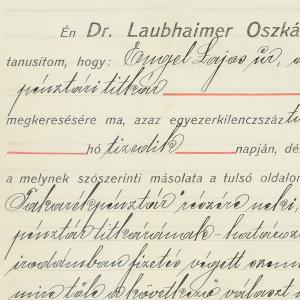 Én Dr. Laubhaimer Oszká
tanusítom, hogy: Engel Lajos úr, a
pénztári titkár
megkeresésére ma, azaz egyezerkilenczszáz ti
hó tizedik napján, dé
a melynek szószerinti másolata a tulsó oldalon
Takarékpénztár részére neki,
pénztár titkárának határoz
irodámban fizetés végett szem
mire tőle a következő választ